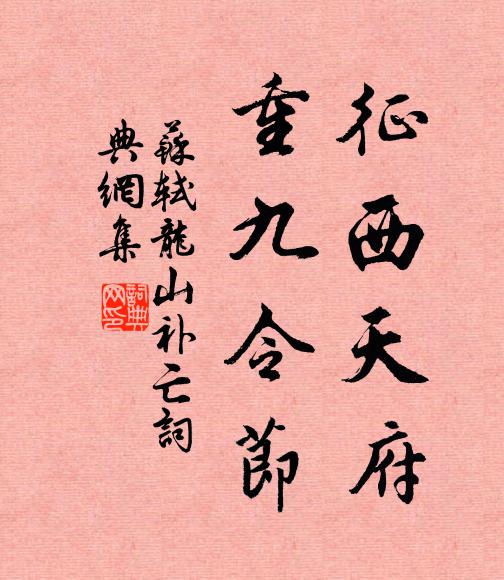 征西天府
重九令節
蘇軾龍山补亡詞
典網集
詞典网印